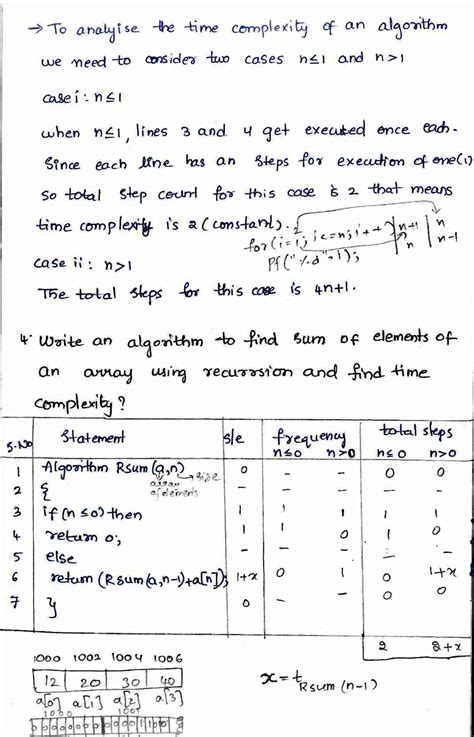 → To analyise the time complexity of an algorithm
we need to consider two cases n≤1 and n>1
case i: n≤1
when n≤1, lines 3 and 4 get executed once each.
Since each line has an steps for execution of one(1)
so total step count for this case is 2 that means
time complexity is 2 (constant).
for(i=1; i<=n; i++) n+1 n
Pf("%d", i); n n-1
case ii: n>1
The total steps for this case is 4n+1.
4. Write an algorithm to find sum of elements of
an array using recurrsion and find time
complexity?
S.NO Statement s/e frequency total steps
n≤0 n>0 n≤0 n>0
1 Algorithm Rsum(a,n) → size 0 - - 0 0
array of elements
2 { - - - - -
3 if(n≤0) then 1 1 1 1 1
4 return 0; 1 1 0 1 0
5 else - - - - -
6 return (Rsum(a,n-1)+a[n]); 1+x 0 1 0 1+x
7 } 0 - - 0 0
2 2+x
1000 1002 1004 1006
12 20 30 40
a[0] a[1] a[2] a[3]
x = t Rsum(n-1)